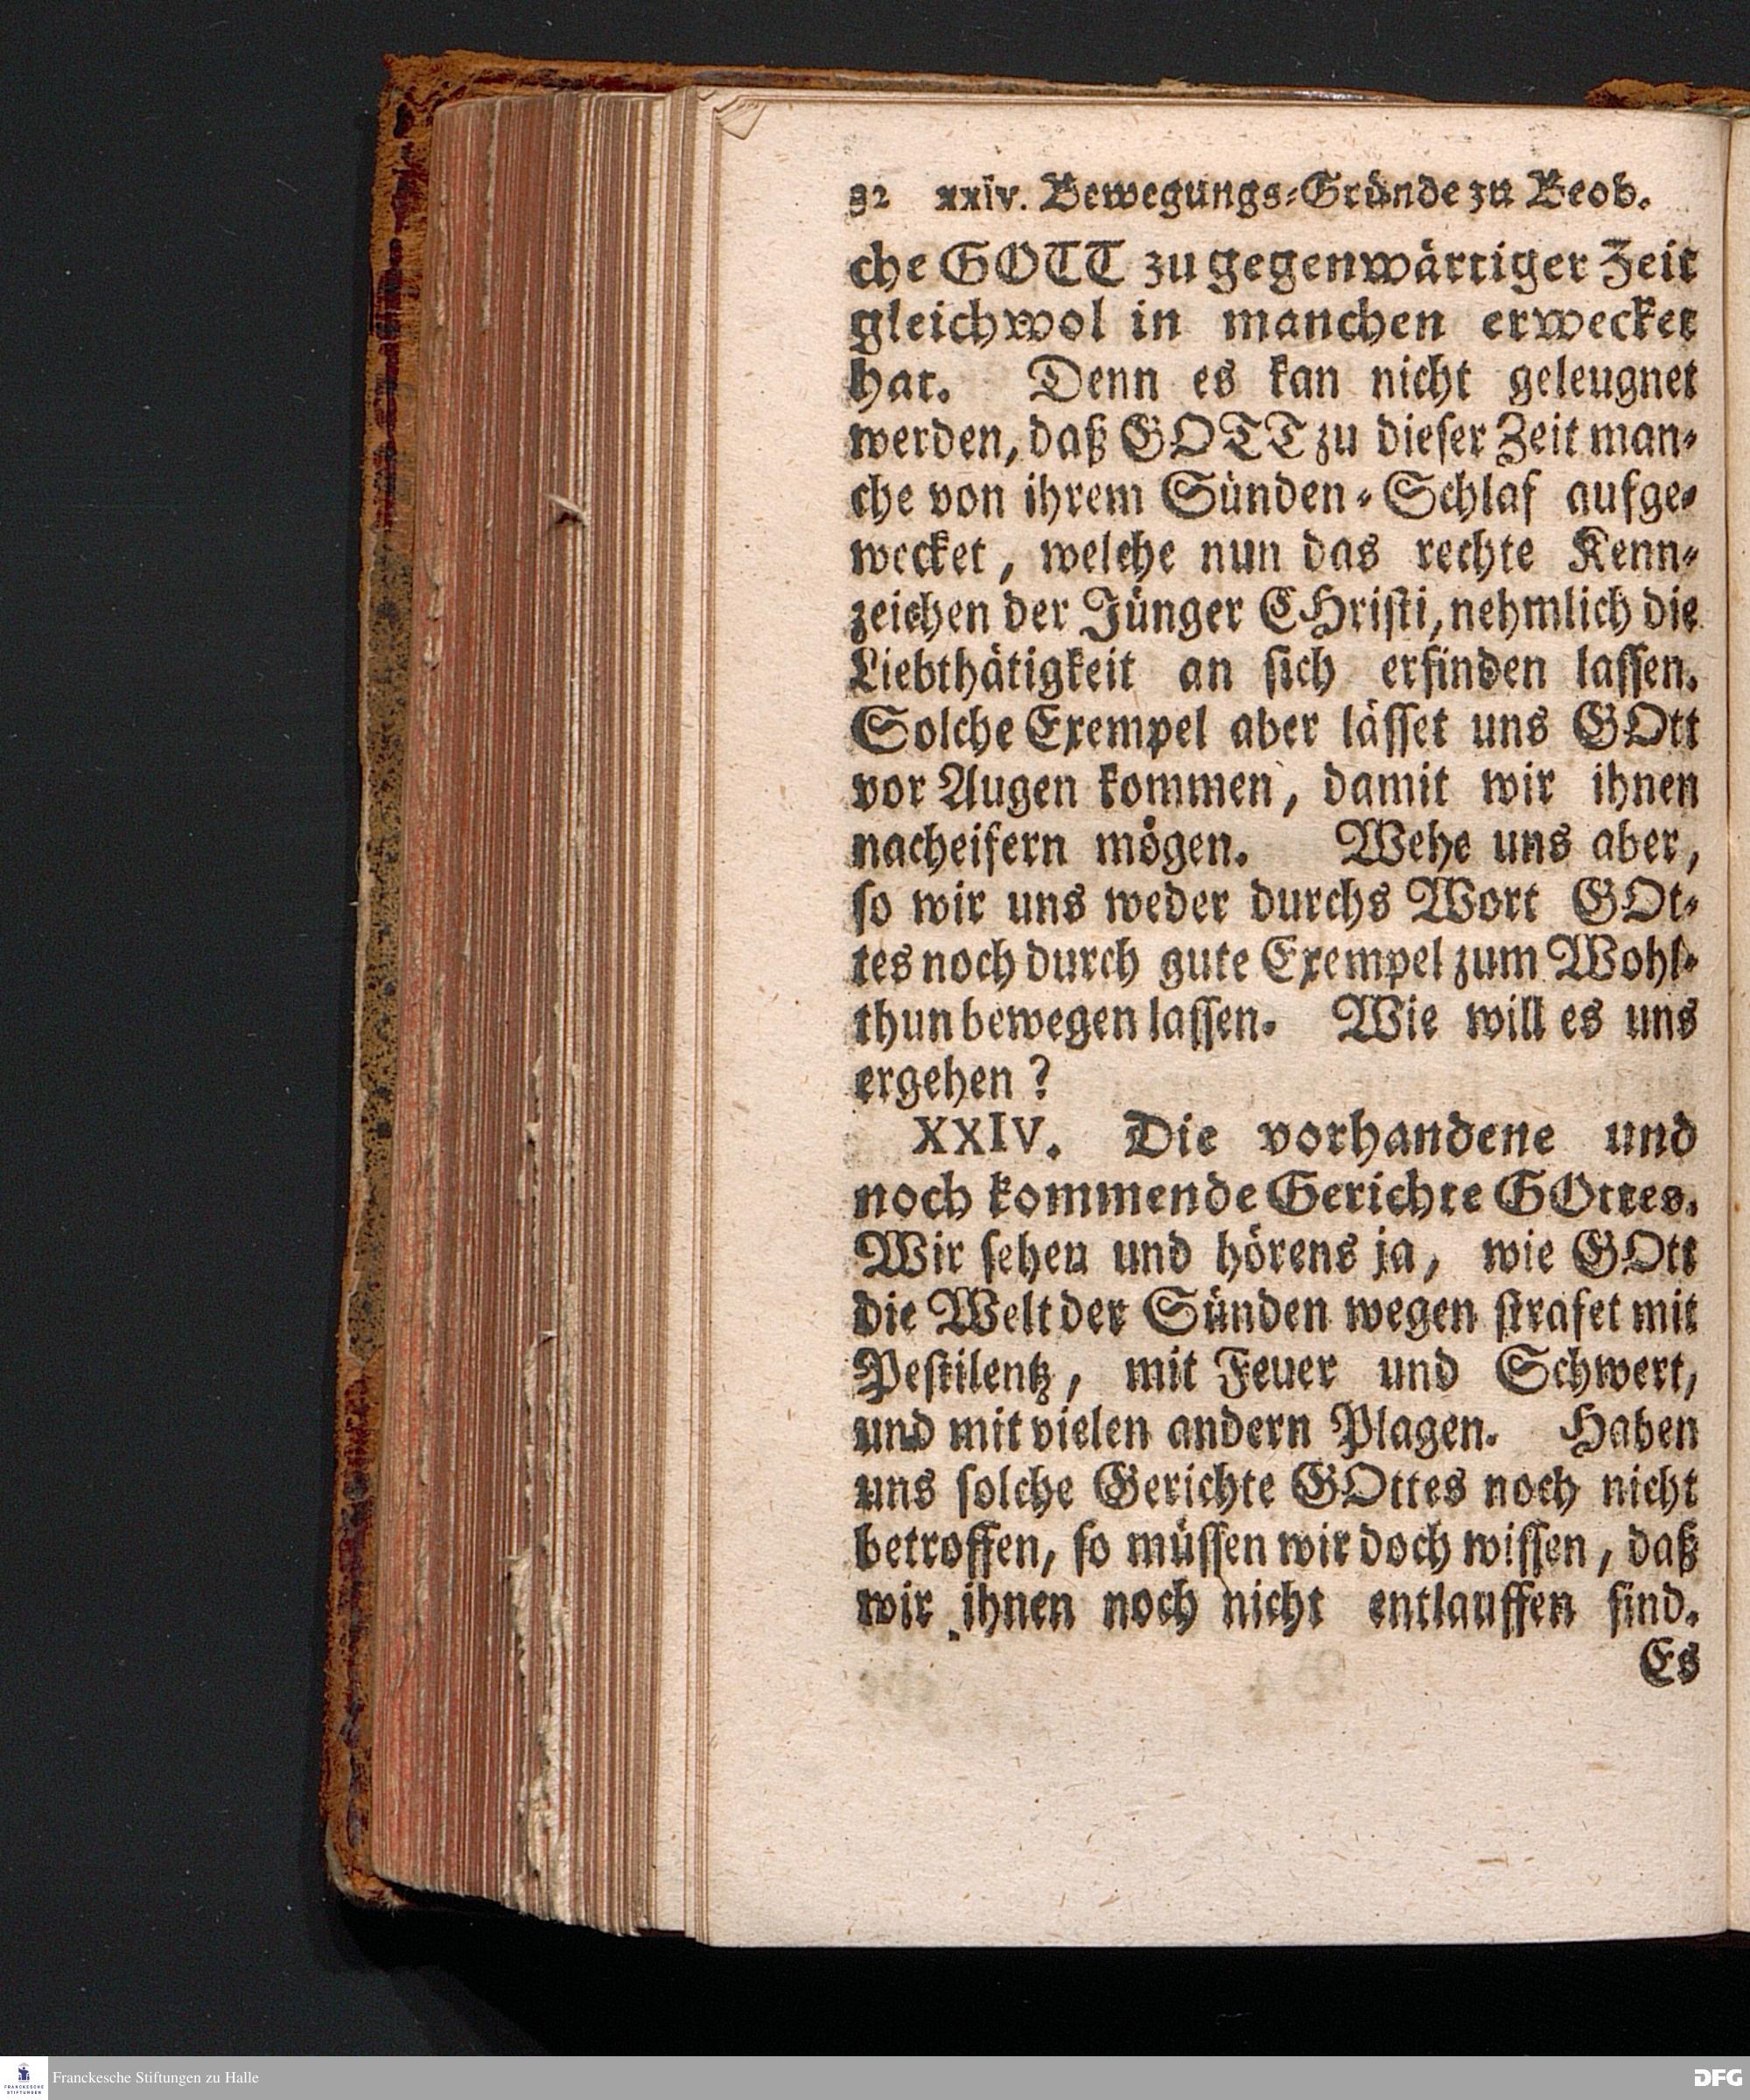 32 xxiv. Bewegungs-Gründe zu Beob.
che GOTT zu gegenwärtiger Zeit
gleichwol in manchen erwecket
hat. Denn es kan nicht geleugnet
werden, daß GOTT zu dieser Zeit man-
che von ihrem Sünden-Schlaf aufge-
wecket, welche nun das rechte Kenn-
zeichen der Jünger CHristi, nehmlich die
Liebthätigkeit an sich erfinden lassen.
Solche Exempel aber lässet uns GOtt
vor Augen kommen, damit wir ihnen
nacheifern mögen. Wehe uns aber,
so wir uns weder durchs Wort GOt-
tes noch durch gute Exempel zum Wohl-
thun bewegen lassen. Wie will es uns
ergehen?
XXIV. Die vorhandene und
noch kommende Gerichte GOttes.
Wir sehen und hörens ja, wie GOtt
die Welt der Sünden wegen strafet mit
Pestilentz, mit Feuer und Schwert,
und mit vielen andern Plagen. Haben
uns solche Gerichte GOttes noch nicht
betroffen, so müssen wir doch wissen, daß
wir ihnen noch nicht entlauffen sind.
Es
FRANCKESCHE STIFTUNGEN
Franckesche Stiftungen zu Halle
DFG